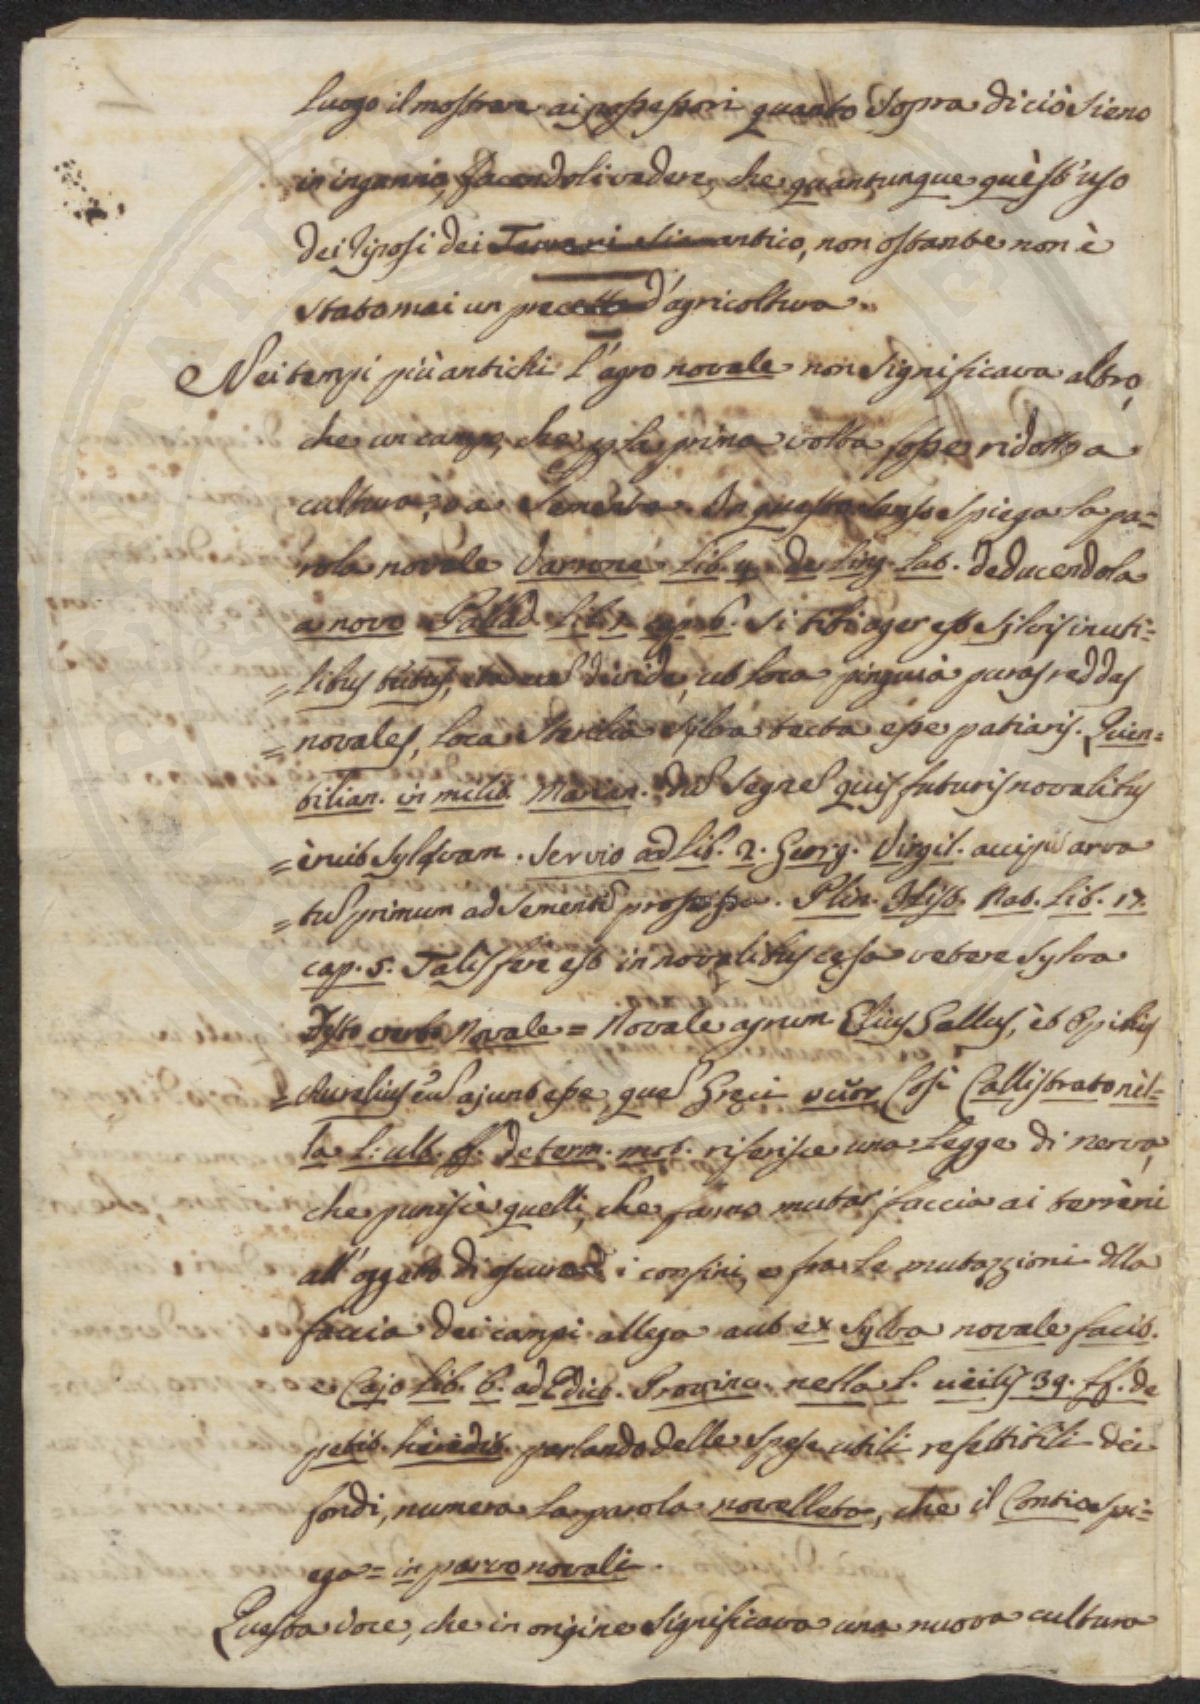 luogo il mostrare ai possessori quanto sopra di ciò sieno
in inganno, facendoli vedere, che quantunque quèst'uso
dei riposi dei Terreni sia antico, non ostante non è
stato mai un precetto d'agricoltura.
Nei tempi più antichi l'agro novale non significava altro,
che un campo, che p la prima volta fosse ridotto a
cultura, o a sementa. In questo senso spiega la pa=
rola novale Varrone Lib. 4. de Ling. Lat. deducendola
a novo Pallad. Lib. 1. cap. 6. si tibi ager est sylvis inuti=
=libus divide, ut loca pinguia puras reddas
=novales, loca sterilia sylva tecta esse patiaris. Quin=
tilian. in milit. Marian. segnes quis futuris novalibus
=èruit sylvam. Servio ad Lib. 2. Georg. Virgil. accipi arva
=tum primum ad sementē proscissa. Plin. Hist. Nat. Lib. 17.
cap. 5. Talis fere est in novalibus cæsa vetere sylva
Festo verbo Novale = Novale agrum Elius Gallus, èt Opilius
=Aurelius ajunt esse, Greci Così Callistrato nèl=
la L: ult. ff. de term. mot. riferisce una Legge di nerva,
che punisce quelli, che fanno mutar faccia ai terrèni
all'oggetto di oscurare i confini, e fra le mutazzioni dlla
faccia dei campi allega aut ex sylva novale facit.
e Cajo Lib. 6. ad Edict. Provinc. nella L. utilis 39. ff. de
petit. heredit. parlando delle spese utili refettibili dei
fondi, numera la parola novelleto, che il Contio spi=
ega = in parvo novali.
Questa voce, che in origine significava una nuova cultura